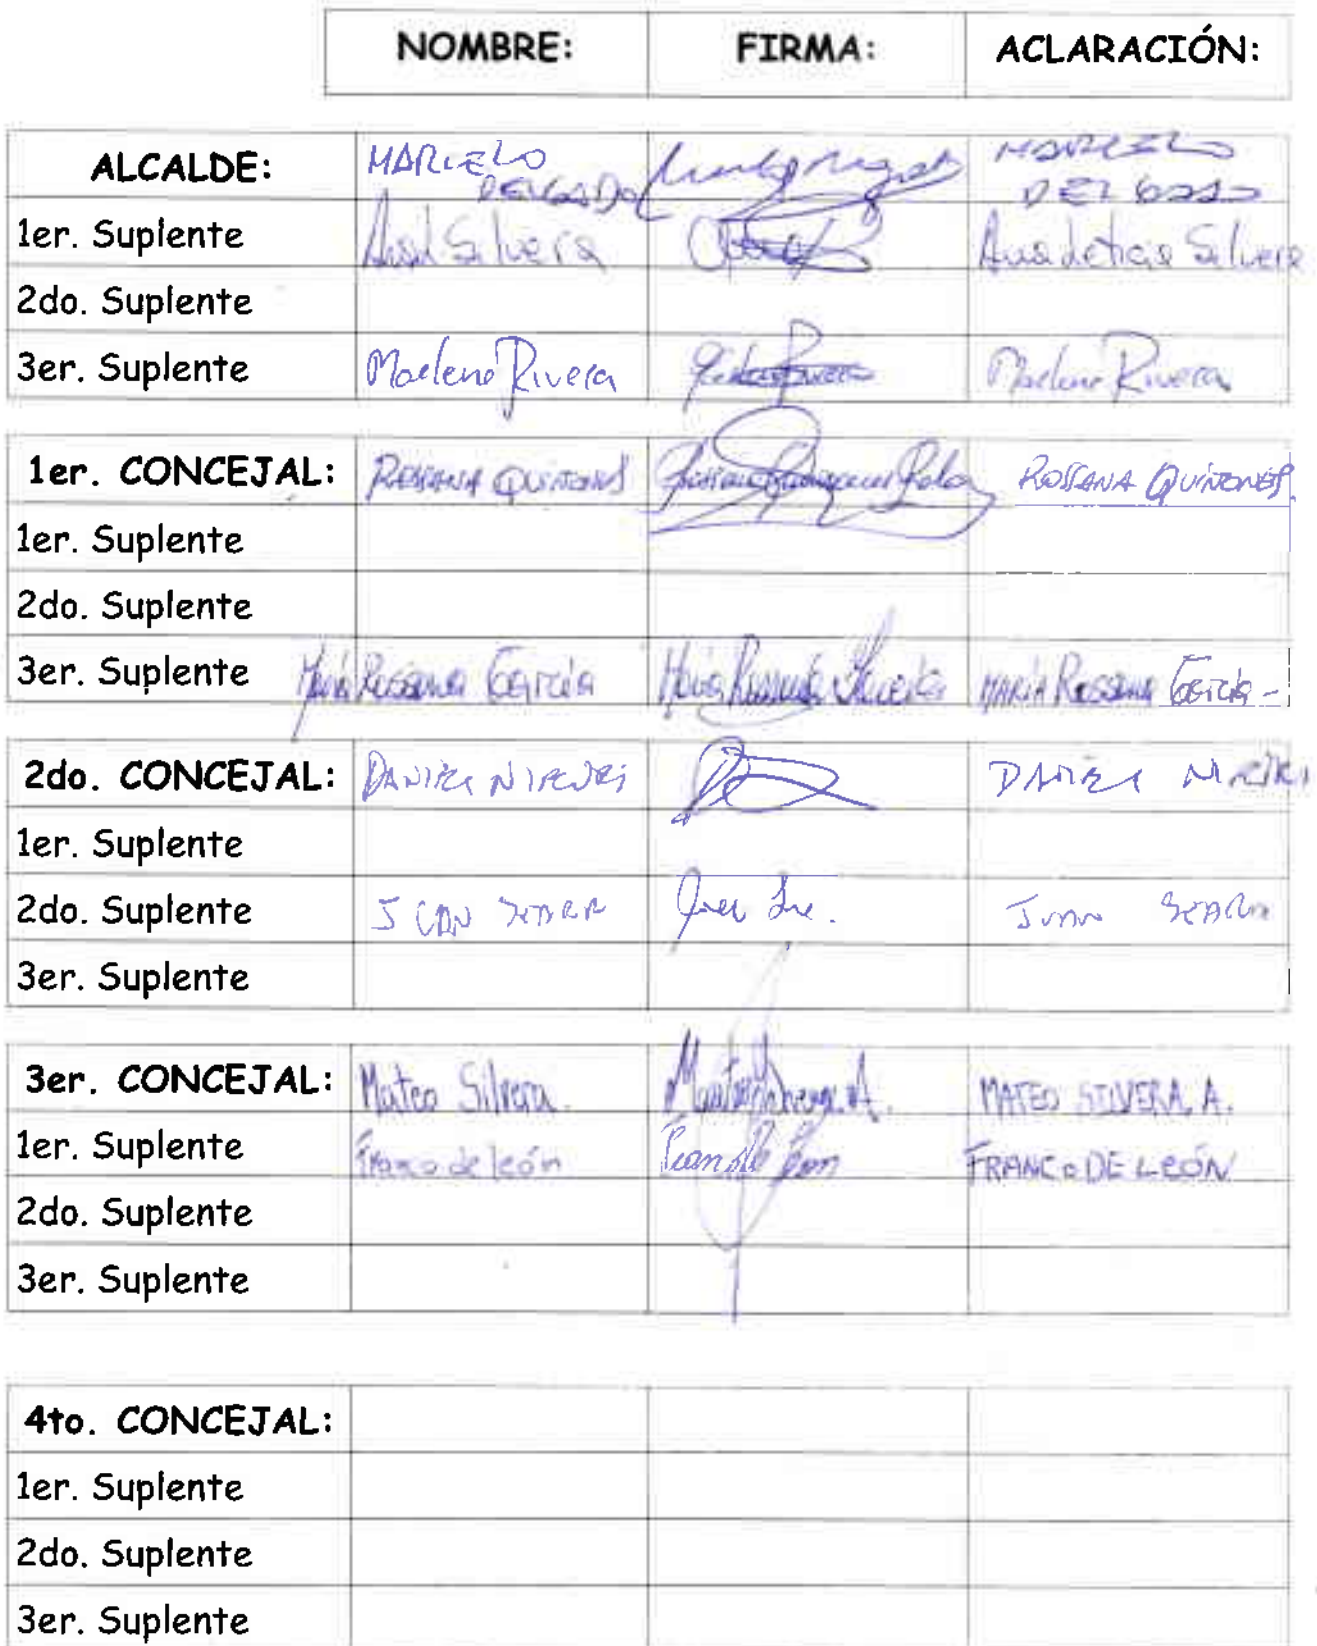 NOMBRE: FIRMA: ACLARACIÓN:
ALCALDE: MARCELO DELGADO MARCELO DELGADO
1er. Suplente Ana Silvera Ana Leticia Silvera
2do. Suplente
3er. Suplente Marlene Rivera Marlene Rivera
1er. CONCEJAL: ROSSANA QUIÑONES ROSSANA QUIÑONES.
1er. Suplente
2do. Suplente
3er. Suplente María Rossana García María Rossana García MARIA Rossana García -
2do. CONCEJAL: DANIEL DANIEL
1er. Suplente
2do. Suplente JUAN JUAN
3er. Suplente
3er. CONCEJAL: Mateo Silvera. MATEO SILVERA A.
1er. Suplente Franco de león FRANCO DE LEÓN
2do. Suplente
3er. Suplente
4to. CONCEJAL:
1er. Suplente
2do. Suplente
3er. Suplente